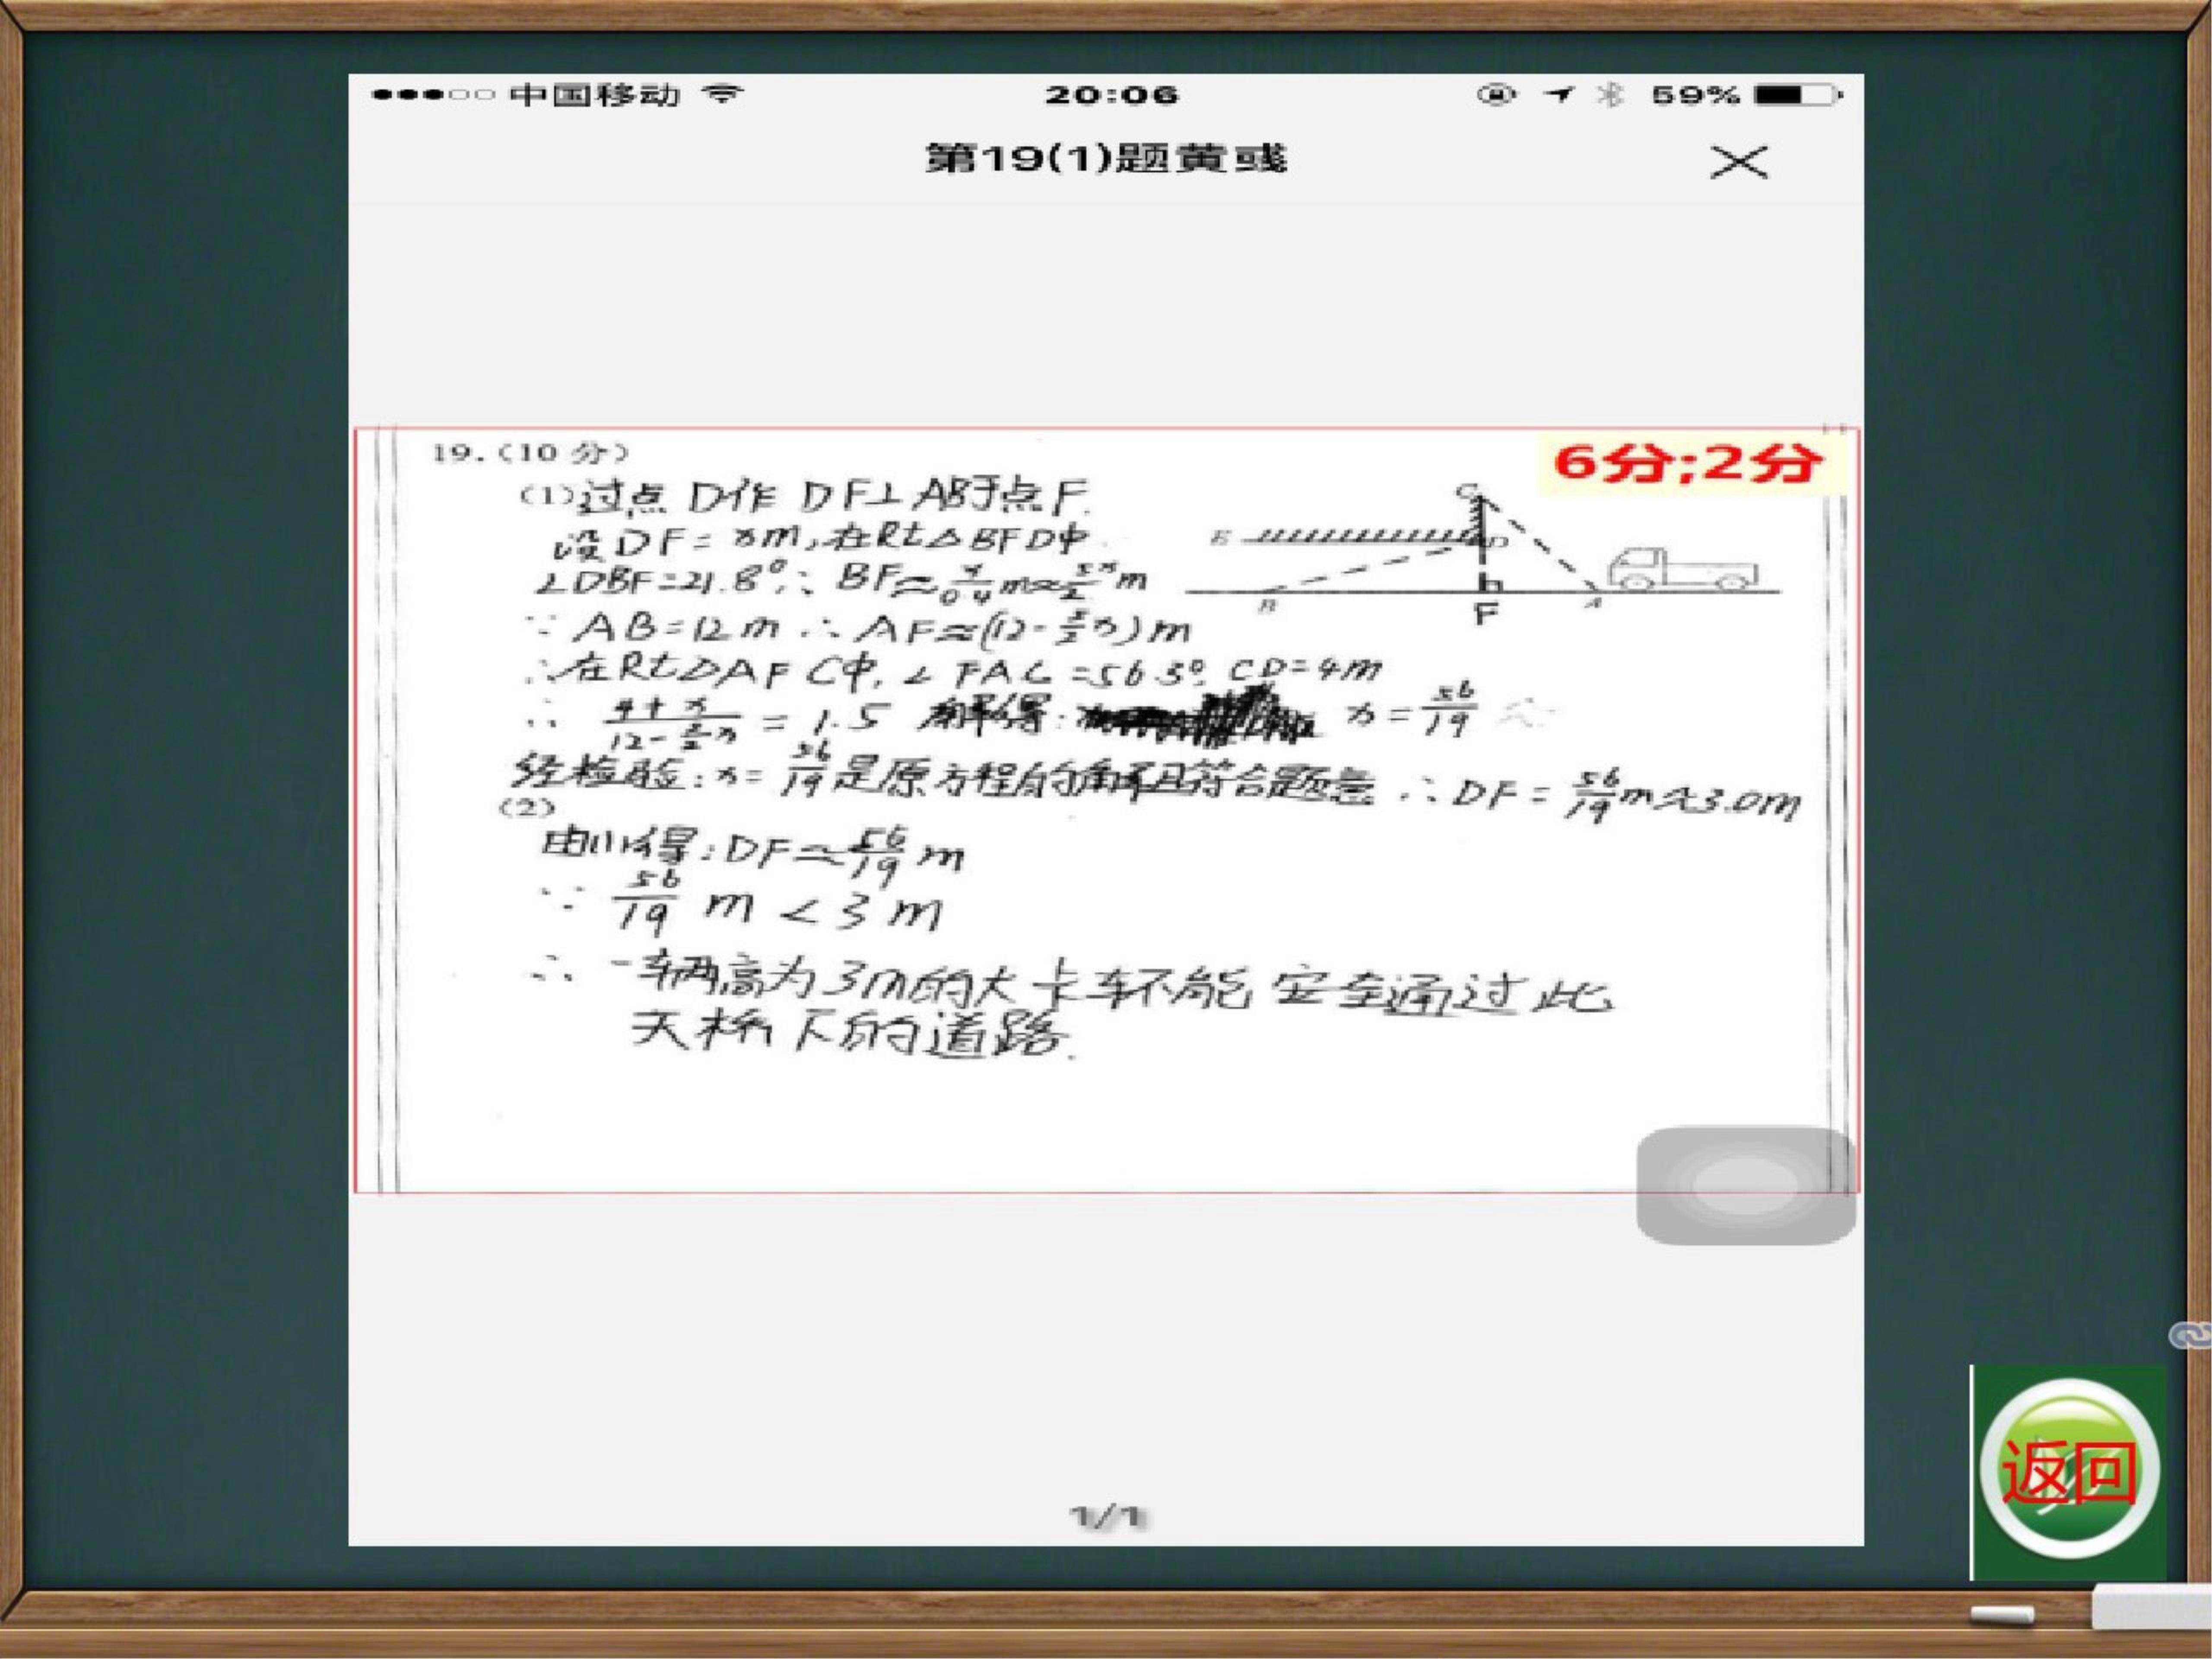 中国移动 20:06 59%
第19(1)题黄彧
19.(10 分)
6分;2分
(1)过点 D作 DF⊥AB于点F.
设DF= xm,在Rt△BFD中
∠DBF=21.8°,∴ BF≈x/0.4 m≈5/2 x m
∵ AB=12m ∴ AF≈(12-5/2 x)m
∴在Rt△AFC中,∠FAC=56.3°, CD=4m
∴ (4+x)/(12-5/2 x) = 1.5 解得: x=56/19
经检验:x=56/19是原方程的解且符合题意 ∴DF=56/19m≈3.0m
C
E
D
B
F
A
(2)
由(1)得:DF≈56/19 m
∵ 56/19 m < 3 m
∴ 一辆高为3m的大卡车不能安全通过此
天桥下的道路.
1/1
返回